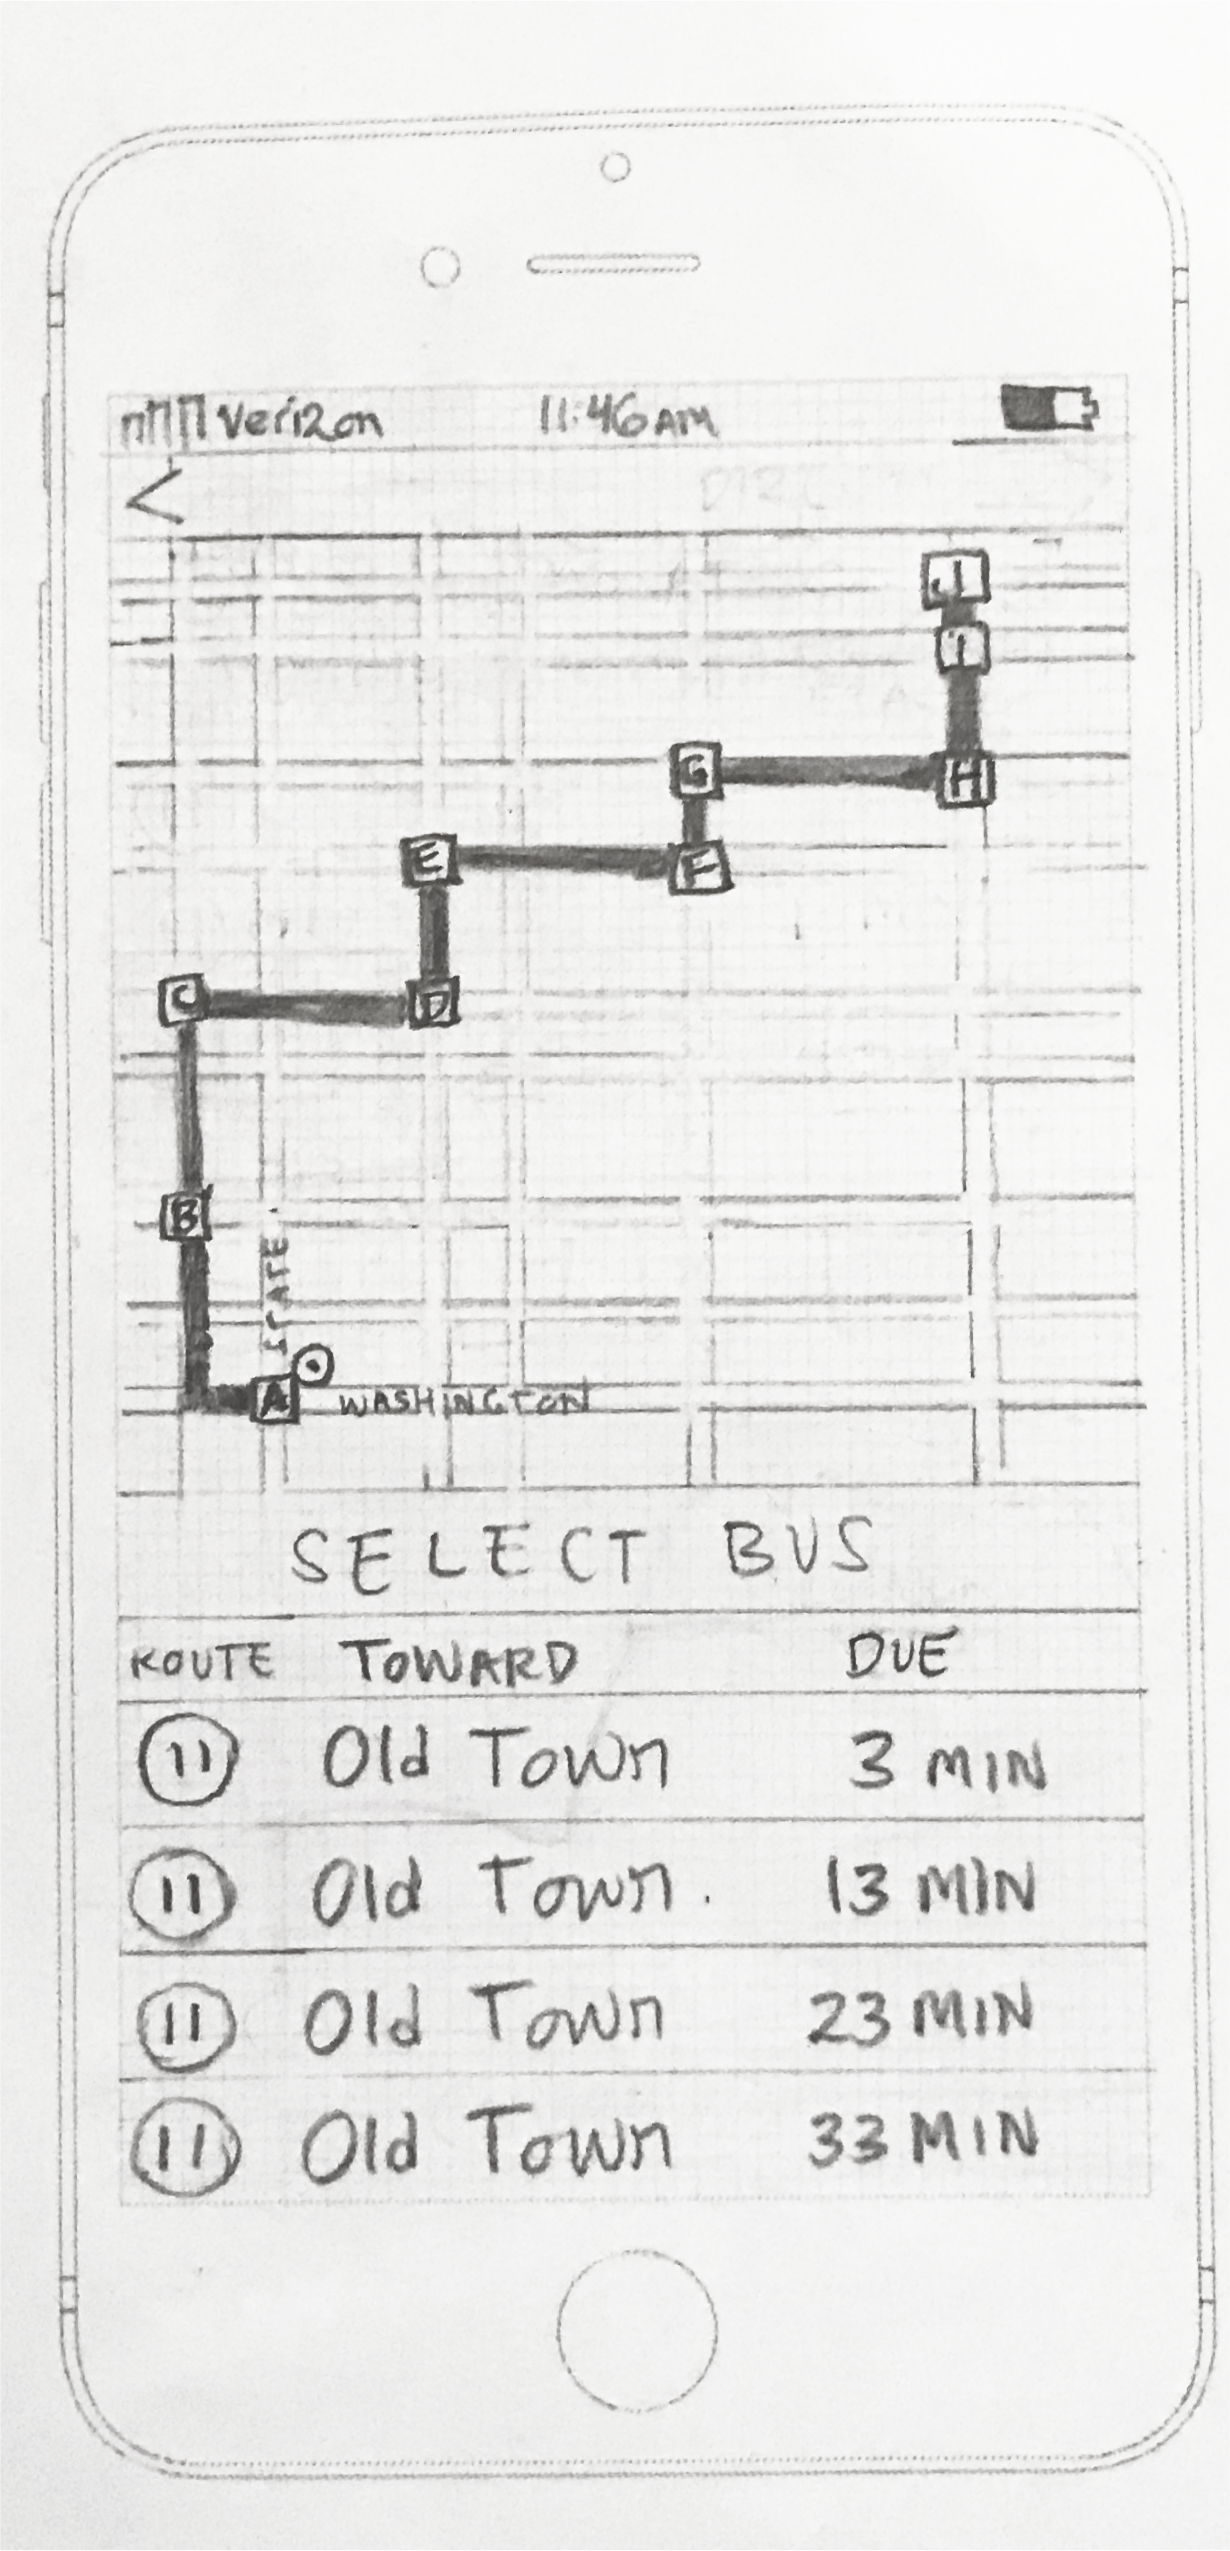 Verizon 11:46AM
<
J
I
G H
E F
C D
B
STATE
A WASHINGTON
SELECT BUS
ROUTE TOWARD DUE
11 Old Town 3 MIN
11 Old Town. 13 MIN
11 Old Town 23 MIN
11 Old Town 33 MIN